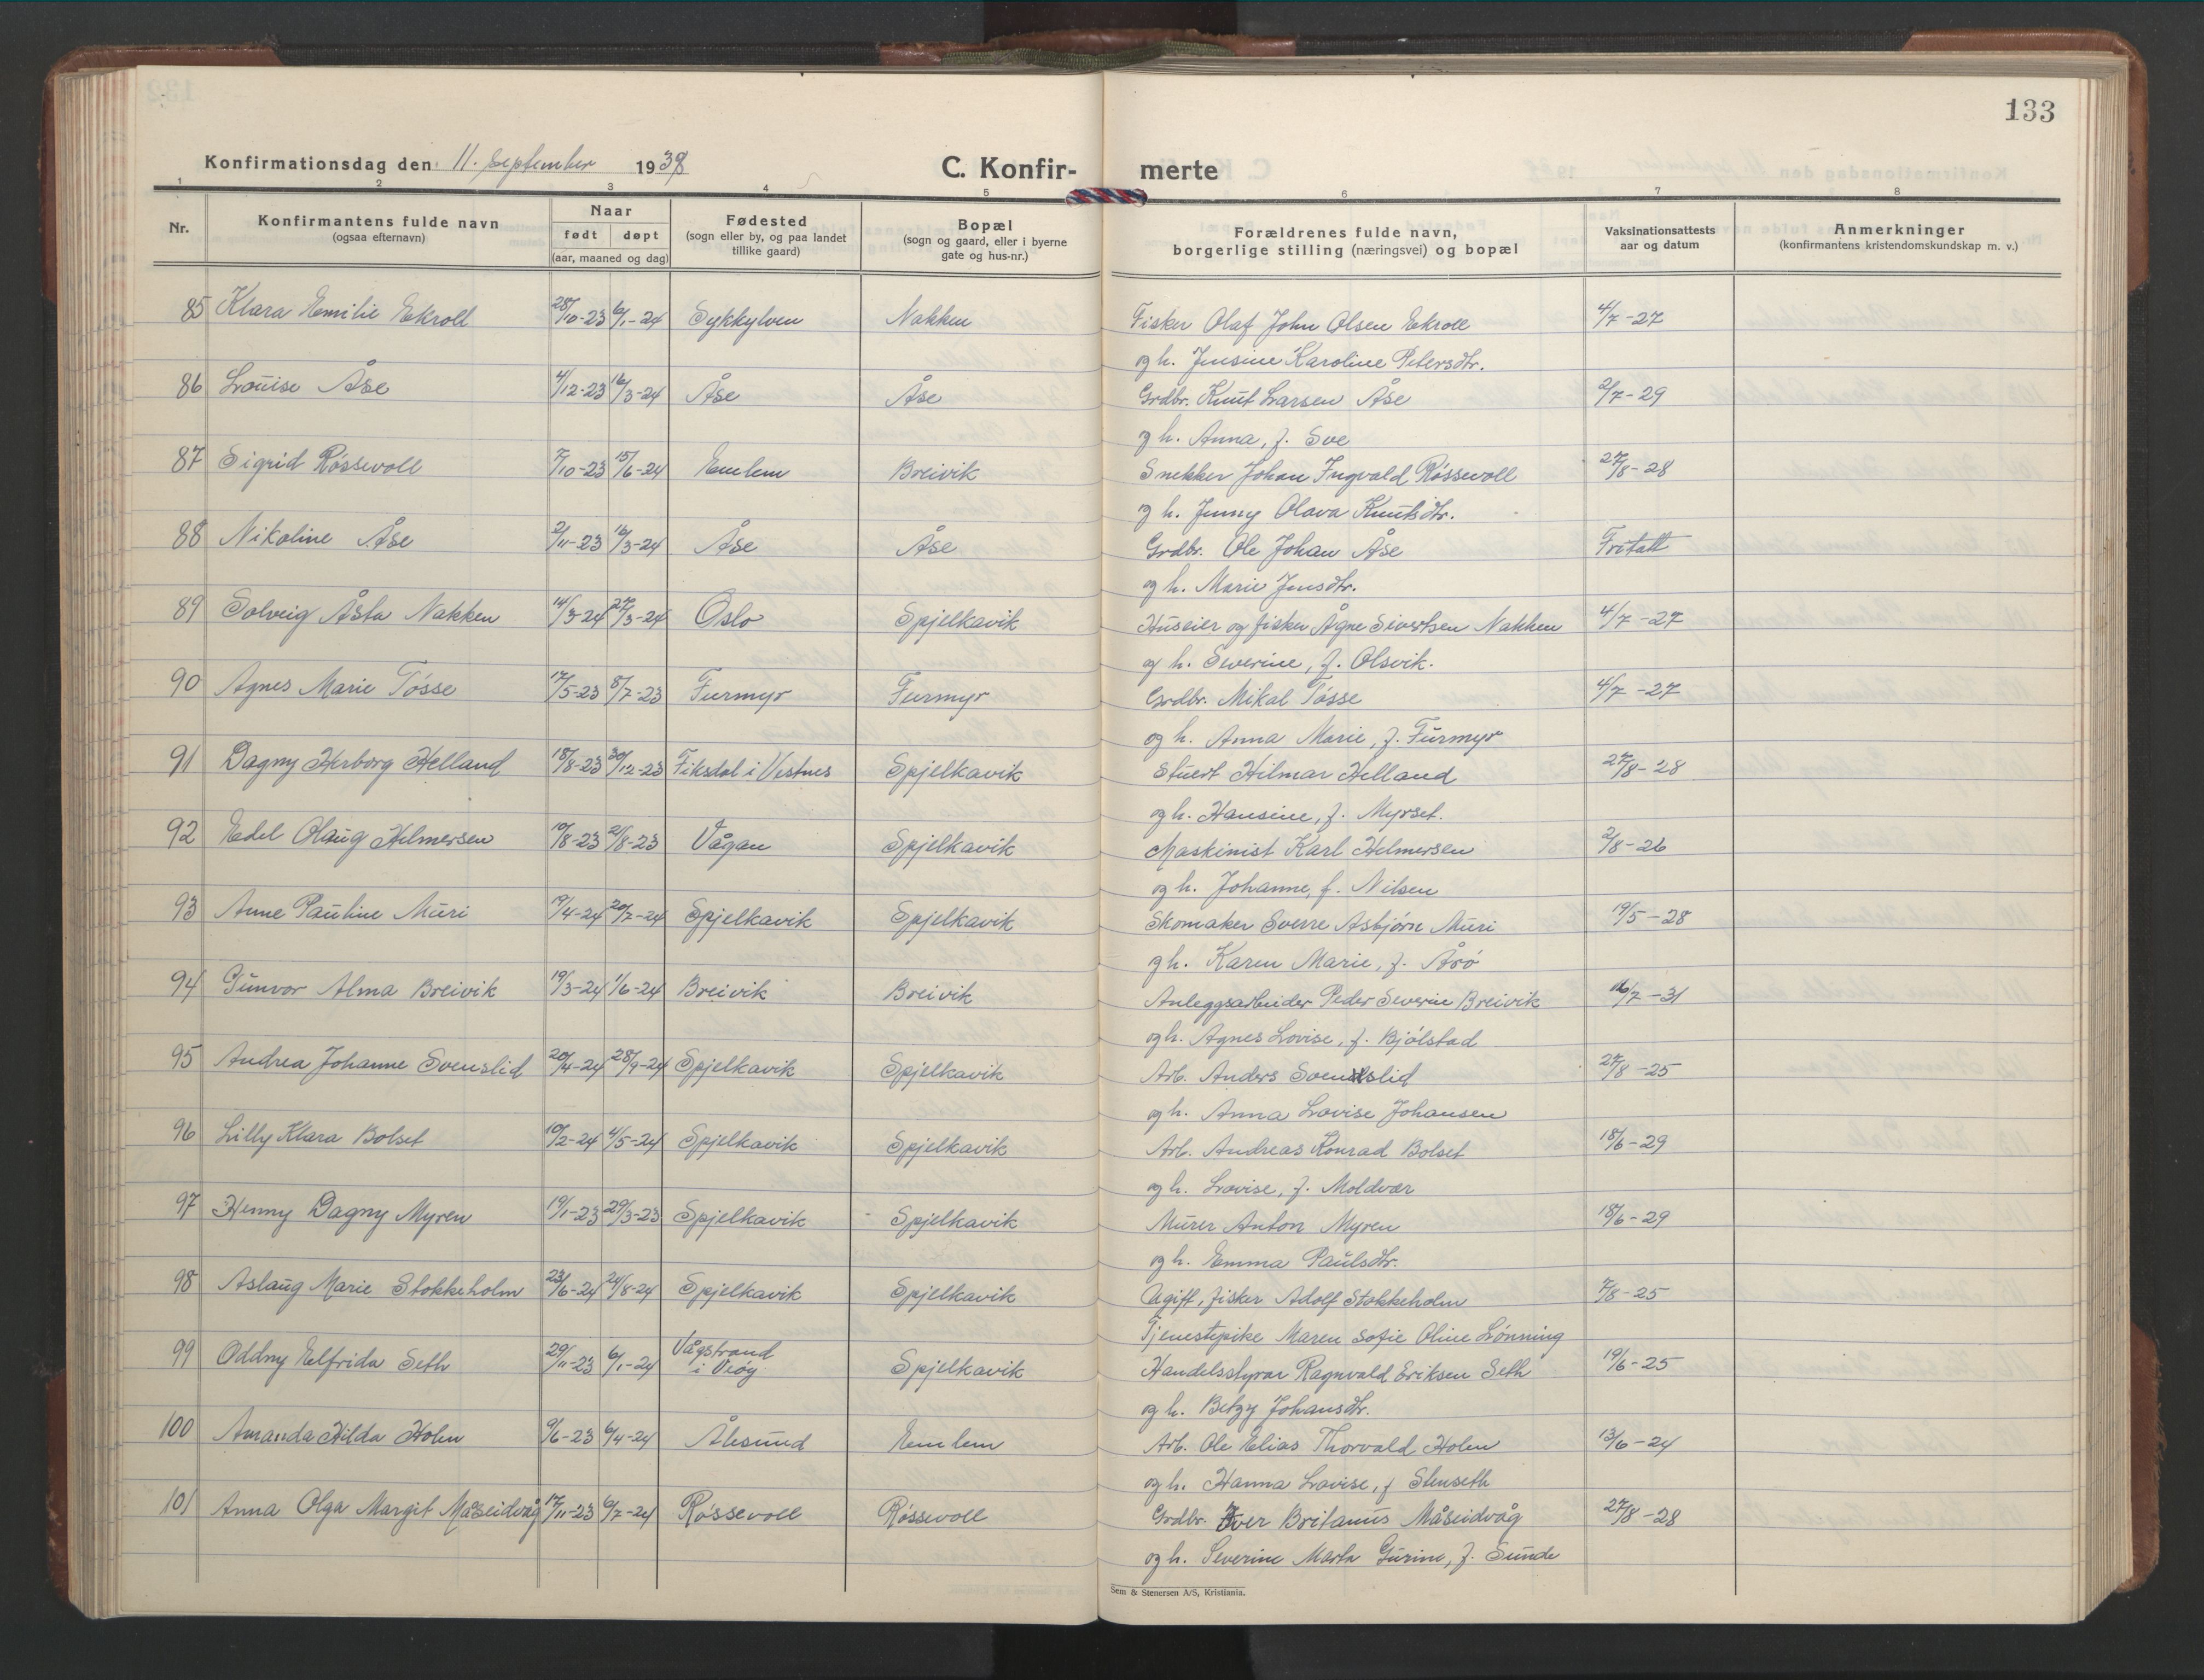 133
Konfirmationsdag den 11. September 1938
C. Konfir- merte
1 2 3 4 5 6 7 8
Nr.
Konfirmantens fulde navn
(ogsaa efternavn)
Naar
født døpt
(aar, maaned og dag)
Fødested
(sogn eller by, og paa landet
tillike gaard)
Bopæl
(sogn og gaard, eller i byerne
gate og hus-nr.)
Forældrenes fulde navn,
borgerlige stilling (næringsvei) og bopæl
Vaksinationsattests
aar og datum
Anmerkninger
(konfirmantens kristendomskundskap m. v.)
85 Klara Emilie Ekroll 28/10-23 6/1-24 Sykkylven Nakken Fisker Olaf John Olsen Ekroll 4/7-27
og h. Jensine Karoline Petersdtr.
86 Louise Åse 4/12-23 16/3-24 Åse Åse Grdbr. Knut Larsen Åse 2/7-29
og h. Anna, f. Sve
87 Sigrid Røssevoll 7/10-23 15/6-24 Emlem Breivik Snekker Johan Ingvald Røssevoll 27/8-28
og h. Jenny Olava Knutsdtr.
88 Nikoline Åse 2/11-23 16/3-24 Åse Åse Grdbr. Ole Johan Åse Fritatt
og h. Marie Jensdtr.
89 Solveig Åsta Nakken 14/3-24 27/3-24 Oslo Spjelkavik Huseier og fisker Ågne Sivertsen Nakken 4/7-27
og h. Severine, f. Olsvik.
90 Agnes Marie Tøsse 17/5-23 8/7-23 Furmyr Furmyr Grdbr. Mikal Tøsse 4/7-27
og h. Anna Marie, f. Furmyr
91 Dagny Herborg Helland 18/8-23 30/12-23 Fiksdal i Vestnes Spjelkavik Stuert Hilmar Helland 27/8-28
og h. Hansine, f. Myrset.
92 Edel Olaug Helmersen 10/8-23 2/8-23 Vågan Spjelkavik Maskinist Karl Helmersen 2/8-26
og h. Johanne, f. Nilsen
93 Anne Pauline Muri 19/4-24 20/7-24 Spjelkavik Spjelkavik Skomaker Sverre Asbjørn Muri 19/5-28
og h. Karen Marie, f. Årø
94 Gunvor Alma Breivik 19/3-24 1/6-24 Breivik Breivik Anleggsarbeider Peder Severin Breivik 16/7-31
og h. Agnes Lovise, f. Bjølstad
95 Andrea Johanne Svenslid 20/4-24 28/9-24 Spjelkavik Spjelkavik Arb. Anders Svenslid 27/8-25
og h. Anna Lovise Johansen
96 Lilly Klara Bolset 10/2-24 4/5-24 Spjelkavik Spjelkavik Arb. Andreas Konrad Bolset 18/6-29
og h. Lovise, f. Moldvær
97 Henny Dagny Myren 19/1-23 29/3-23 Spjelkavik Spjelkavik Murer Anton Myren 18/6-29
og h. Emma Paulsdtr.
98 Aslaug Marie Stokkeholm 23/6-24 24/8-24 Spjelkavik Spjelkavik Ugift, fisker Adolf Stokkeholm 7/8-25
Tjenestepike Maren Sofie Oline Lønning
99 Oddny Elfrida Seth 29/11-23 6/1-24 Vågstrand
i Veøy Spjelkavik Handelsstyrar Ragnvald Eriksen Seth 19/6-25
og h. Betzy Johansdtr.
100 Amanda Hilda Holm 9/6-23 6/4-24 Ålesund Emlem Arb. Ole Elias Thorvald Holm 13/6-24
og h. Hanna Lovise, f Stenseth
101 Anna Olga Margit Måseidvåg 17/11-23 6/7-24 Røssevoll Røssevoll Grdbr. Iver Britanus Måseidvåg 27/8-28
og h. Severine Marta Gurine, f. Sunde
Sem & Stenersen A/S, Kristiania.